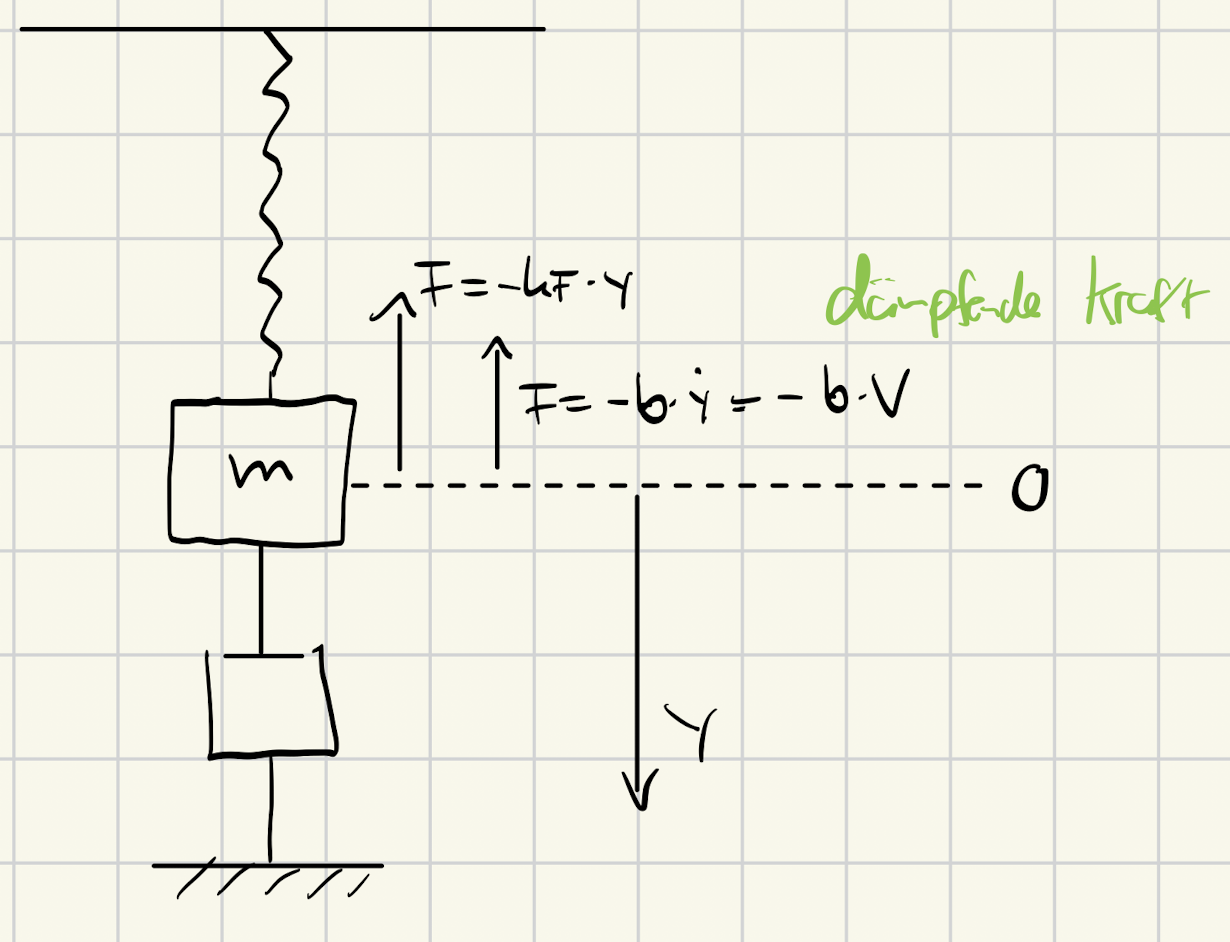 F = -kF · y
dämpfende kraft
F = -b · ẏ = - b · V
m
0
Y